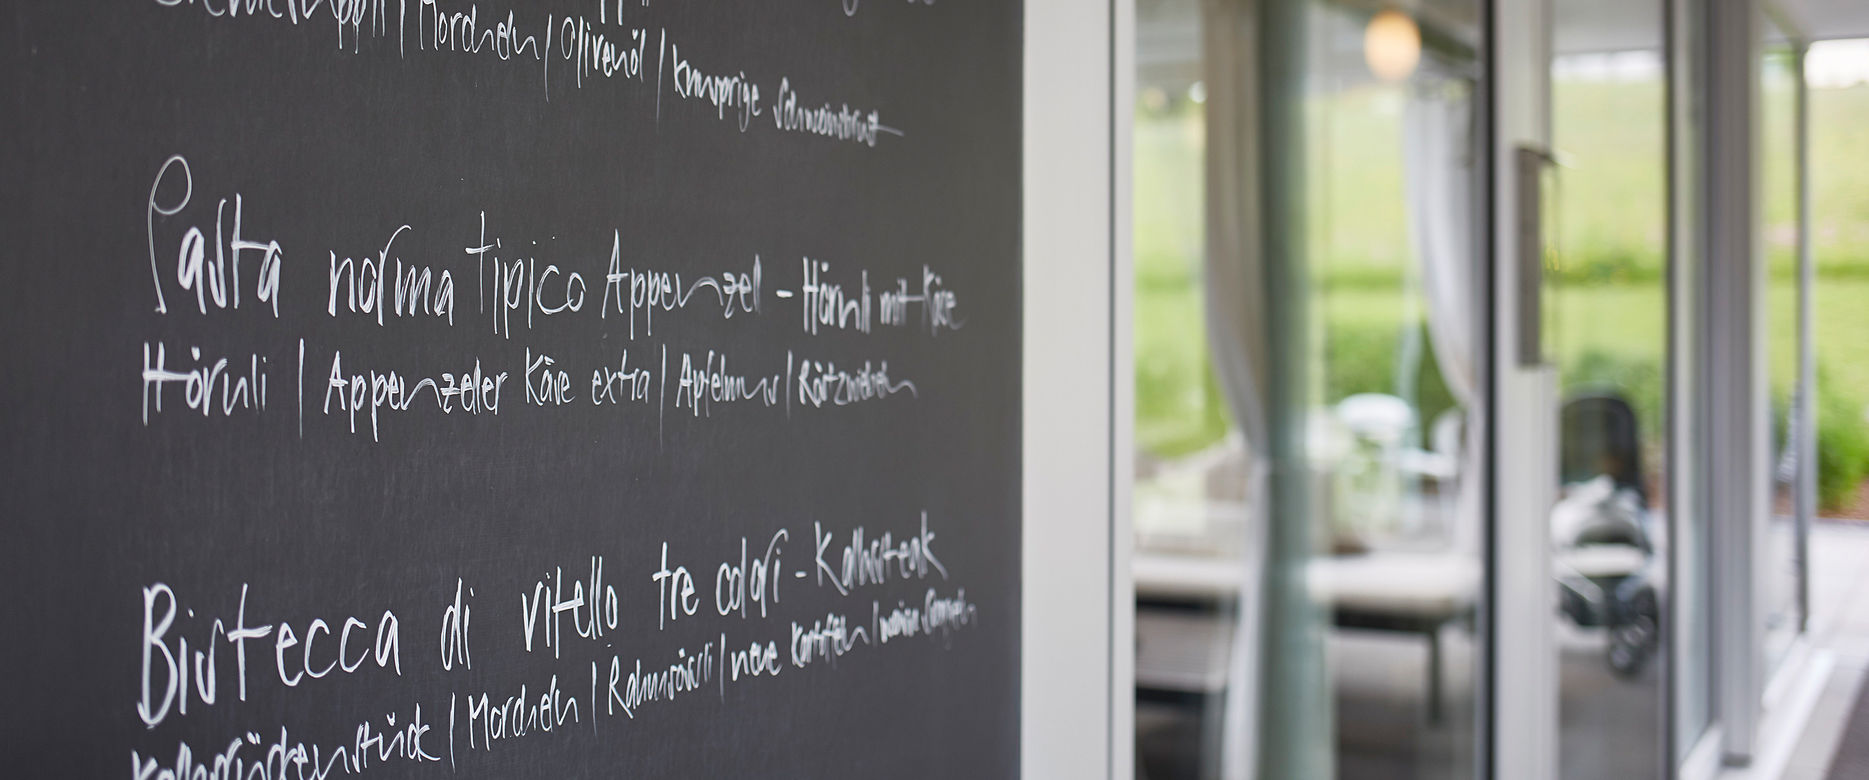 | Morcheln | Olivenöl | knusprige Schweinsbrust
Pasta norma tipico Appenzell - Hörnli mit Käse
Hörnli | Appenzeller Käse extra | Apfelmus | Röstzwiebeln
Bistecca di vitello tre colori - Kalbsteak
Kalbsrückenstück | Morcheln | Rahmsössli | neue Kartoffeln | weisse Spargeln